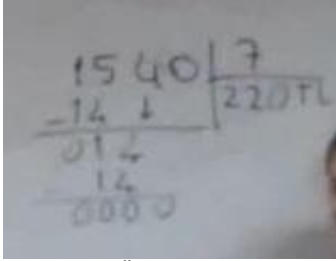 1540 7
-14 ↓ 220TL
014
14
0000